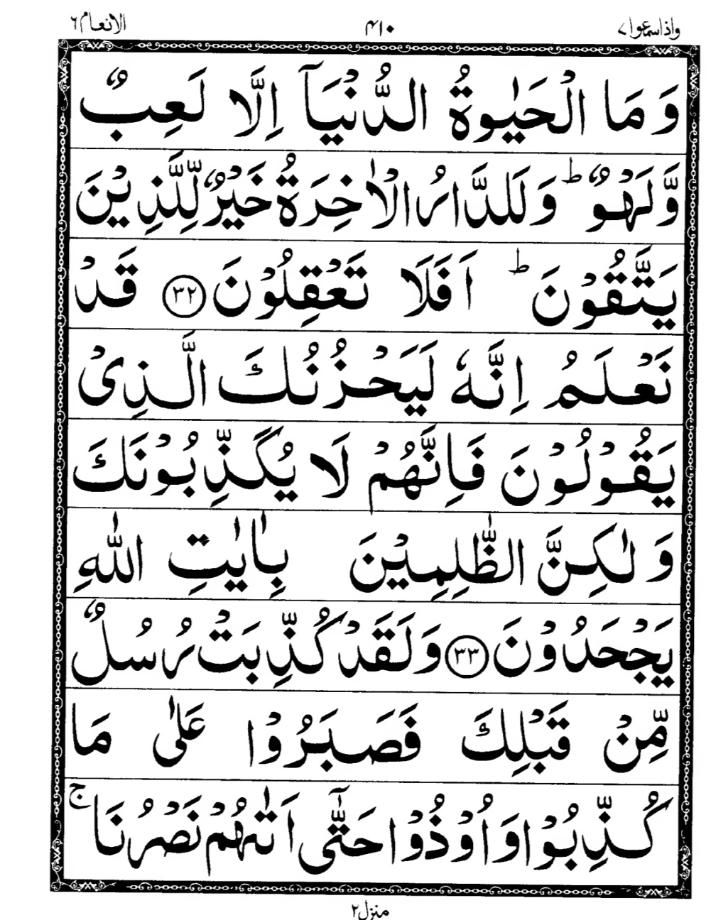 واذاسمعوا۷ ۴۱۰ الانعام۶
وَ مَا الْحَيٰوةُ الدُّنْيَاۤ اِلَّا لَعِبٌ
وَّلَهْوٌ ؕ وَ لَلدَّارُ الْاٰخِرَةُ خَيْرٌ لِّلَّذِيْنَ
يَتَّقُوْنَ ؕ اَفَلَا تَعْقِلُوْنَ ۳۲ قَدْ
نَعْلَمُ اِنَّهٗ لَيَحْزُنُكَ الَّذِىْ
يَقُوْلُوْنَ فَاِنَّهُمْ لَا يُكَذِّبُوْنَكَ
وَ لٰكِنَّ الظّٰلِمِيْنَ بِاٰيٰتِ اللّٰهِ
يَجْحَدُوْنَ ۳۳ وَلَقَدْ كُذِّبَتْ رُسُلٌ
مِّنْ قَبْلِكَ فَصَبَرُوْا عَلٰى مَا
كُذِّبُوْا وَ اُوْذُوْا حَتّٰۤى اَتٰىهُمْ نَصْرُنَا ۚ
منزل۲